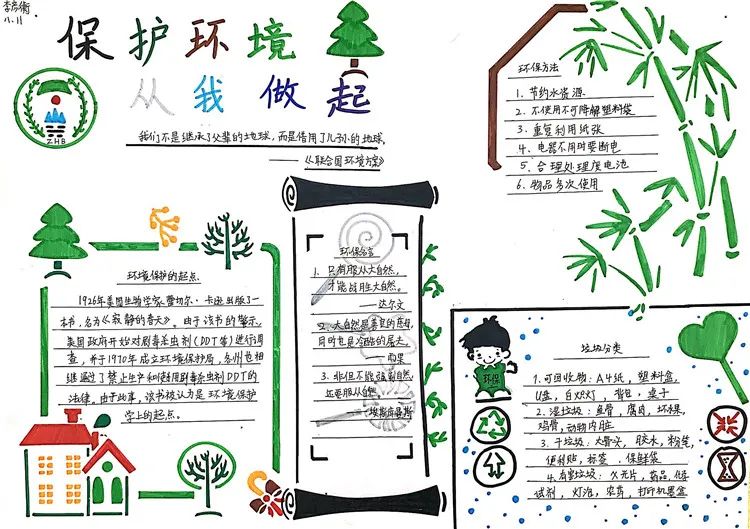 李彦衡
八.11
保护环境
从我做起
ZHB
我们不是继承了父辈的地球,而是借用了儿孙的地球。
——《联合国环境方案》
环保方法
1、节约水资源
2、不使用不可降解塑料袋
3、重复利用纸张
4、电器不用时要断电
5、合理处理废电池
6、物品多次使用
环境保护的起点
1926年美国生物学家蕾切尔·卡逊出版了一
本书,名为《寂静的春天》。由于该书的警示,
美国政府开始对剧毒杀虫剂(DDT等)进行调
查,并于1970年成立环境保护局,各州也相
继通过了禁止生产和使用剧毒杀虫剂DDT的
法律。由于此事,该书被认为是环境保护
学上的起点。
环保名言
1、只有服从大自然,
才能战胜大自然。
——达尔文
2、大自然是善良的慈母,
同时也是冷酷的屠夫
——雨果
3、非但不能强制自然,
还要服从自然
——埃斯库罗斯
环保
垃圾分类
1.可回收物:A4纸,塑料盒,
U盘,白炽灯,背包,桌子
2.湿垃圾:鱼骨,腐肉,坏水果,
鸡骨,动物内脏
3.干垃圾:大骨头,胶水,粉笔,
便利贴,标签,保鲜袋
4.有害垃圾:X光片,药品,化学
试剂,灯泡,农药,打印机墨盒